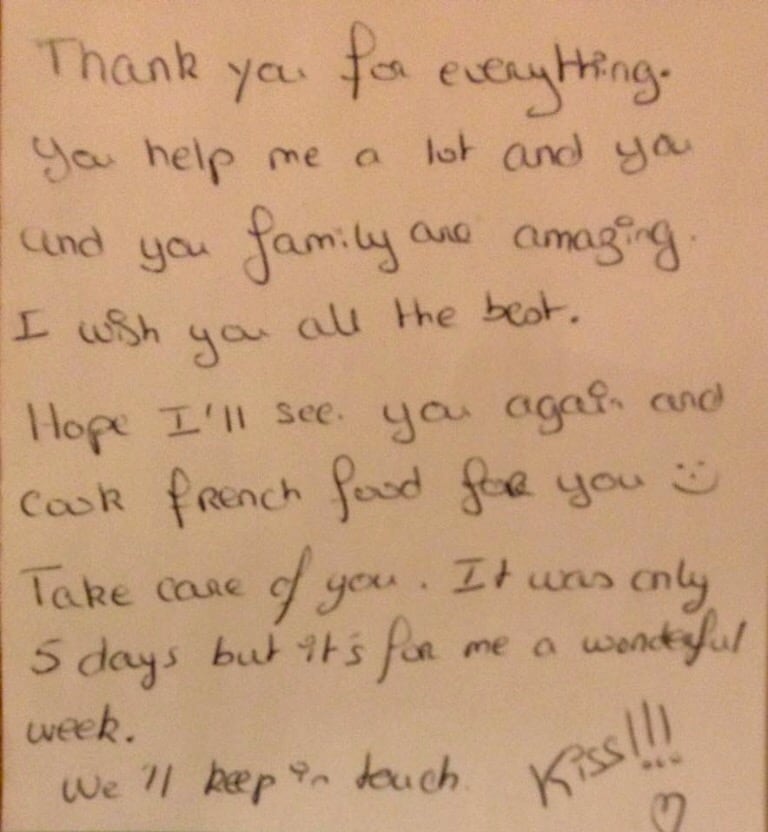 Thank you for everything.
You help me a lot and you
and you family are amazing.
I wish you all the best.
Hope I'll see you again and
cook french food for you :)
Take care of you. It was only
5 days but it's for me a wonderful
week.
We'll keep in touch. Kiss!!!
♡